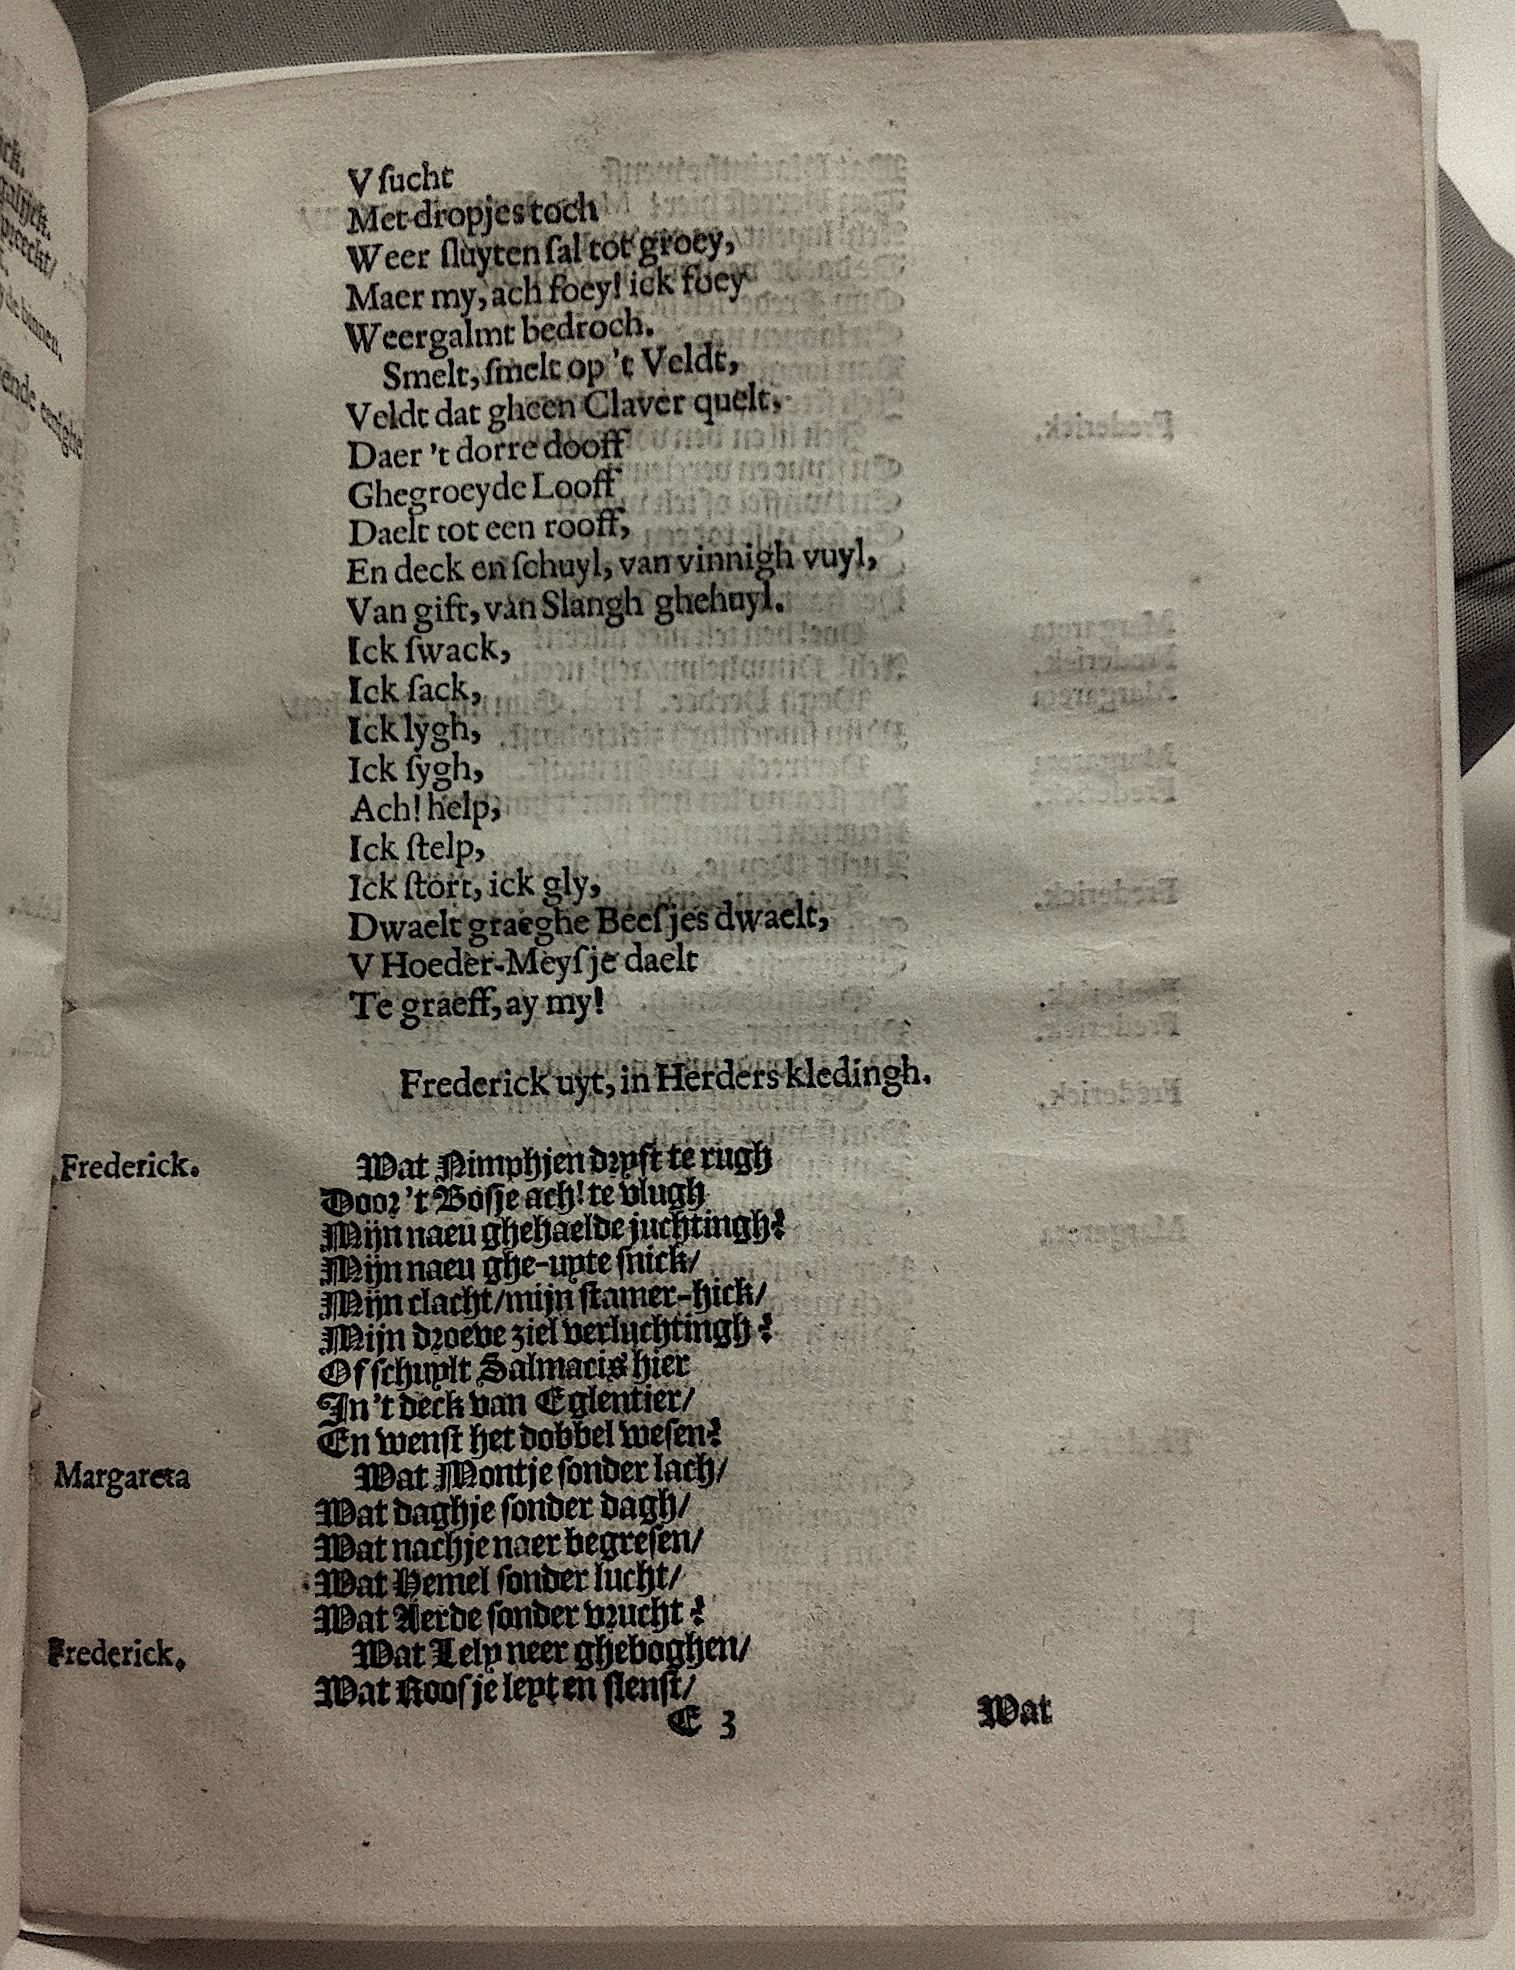 V ſucht
Met dropjes toch
Weer ſluyten ſal tot groey,
Maer my, ach foey! ick foey
Weergalmt bedroch.
Smelt, ſmelt op 't Veldt,
Veldt dat gheen Claver quelt,
Daer 't dorre dooff
Ghegroeyde Looff
Daelt tot een rooff,
En deck en ſchuyl, van vinnigh vuyl,
Van gift, van Slangh ghehuyl.
Ick ſwack,
Ick ſack,
Ick lygh,
Ick ſygh,
Ach! help,
Ick ſtelp,
Ick ſtort, ick gly,
Dwaelt graeghe Beeſjes dwaelt,
V Hoeder-Meyſje daelt
Te graeff, ay my!
Frederick uyt, in Herders kledingh.
Frederick. Wat Nimphjen dryft te rugh
Door 't Bosje ach! te vlugh
Mijn naeu ghehaelde juchtingh?
Mijn naeu ghe-uyte ſnick/
Mijn clacht/mijn ſtamer-hick/
Mijn droeve ziel verluchtingh?
Of ſchuylt Salmacis hier
In 't deck van Eglentier/
En wenſt het dobbel weſen?
Margareta Wat Montje ſonder lach/
Wat daghje ſonder dagh/
Wat nachje naer begreſen/
Wat Hemel ſonder lucht/
Wat Aerde ſonder vrucht?
Frederick. Wat Lely neer gheboghen/
Wat Roosje leyt en ſlenſt/
E 3 Wat